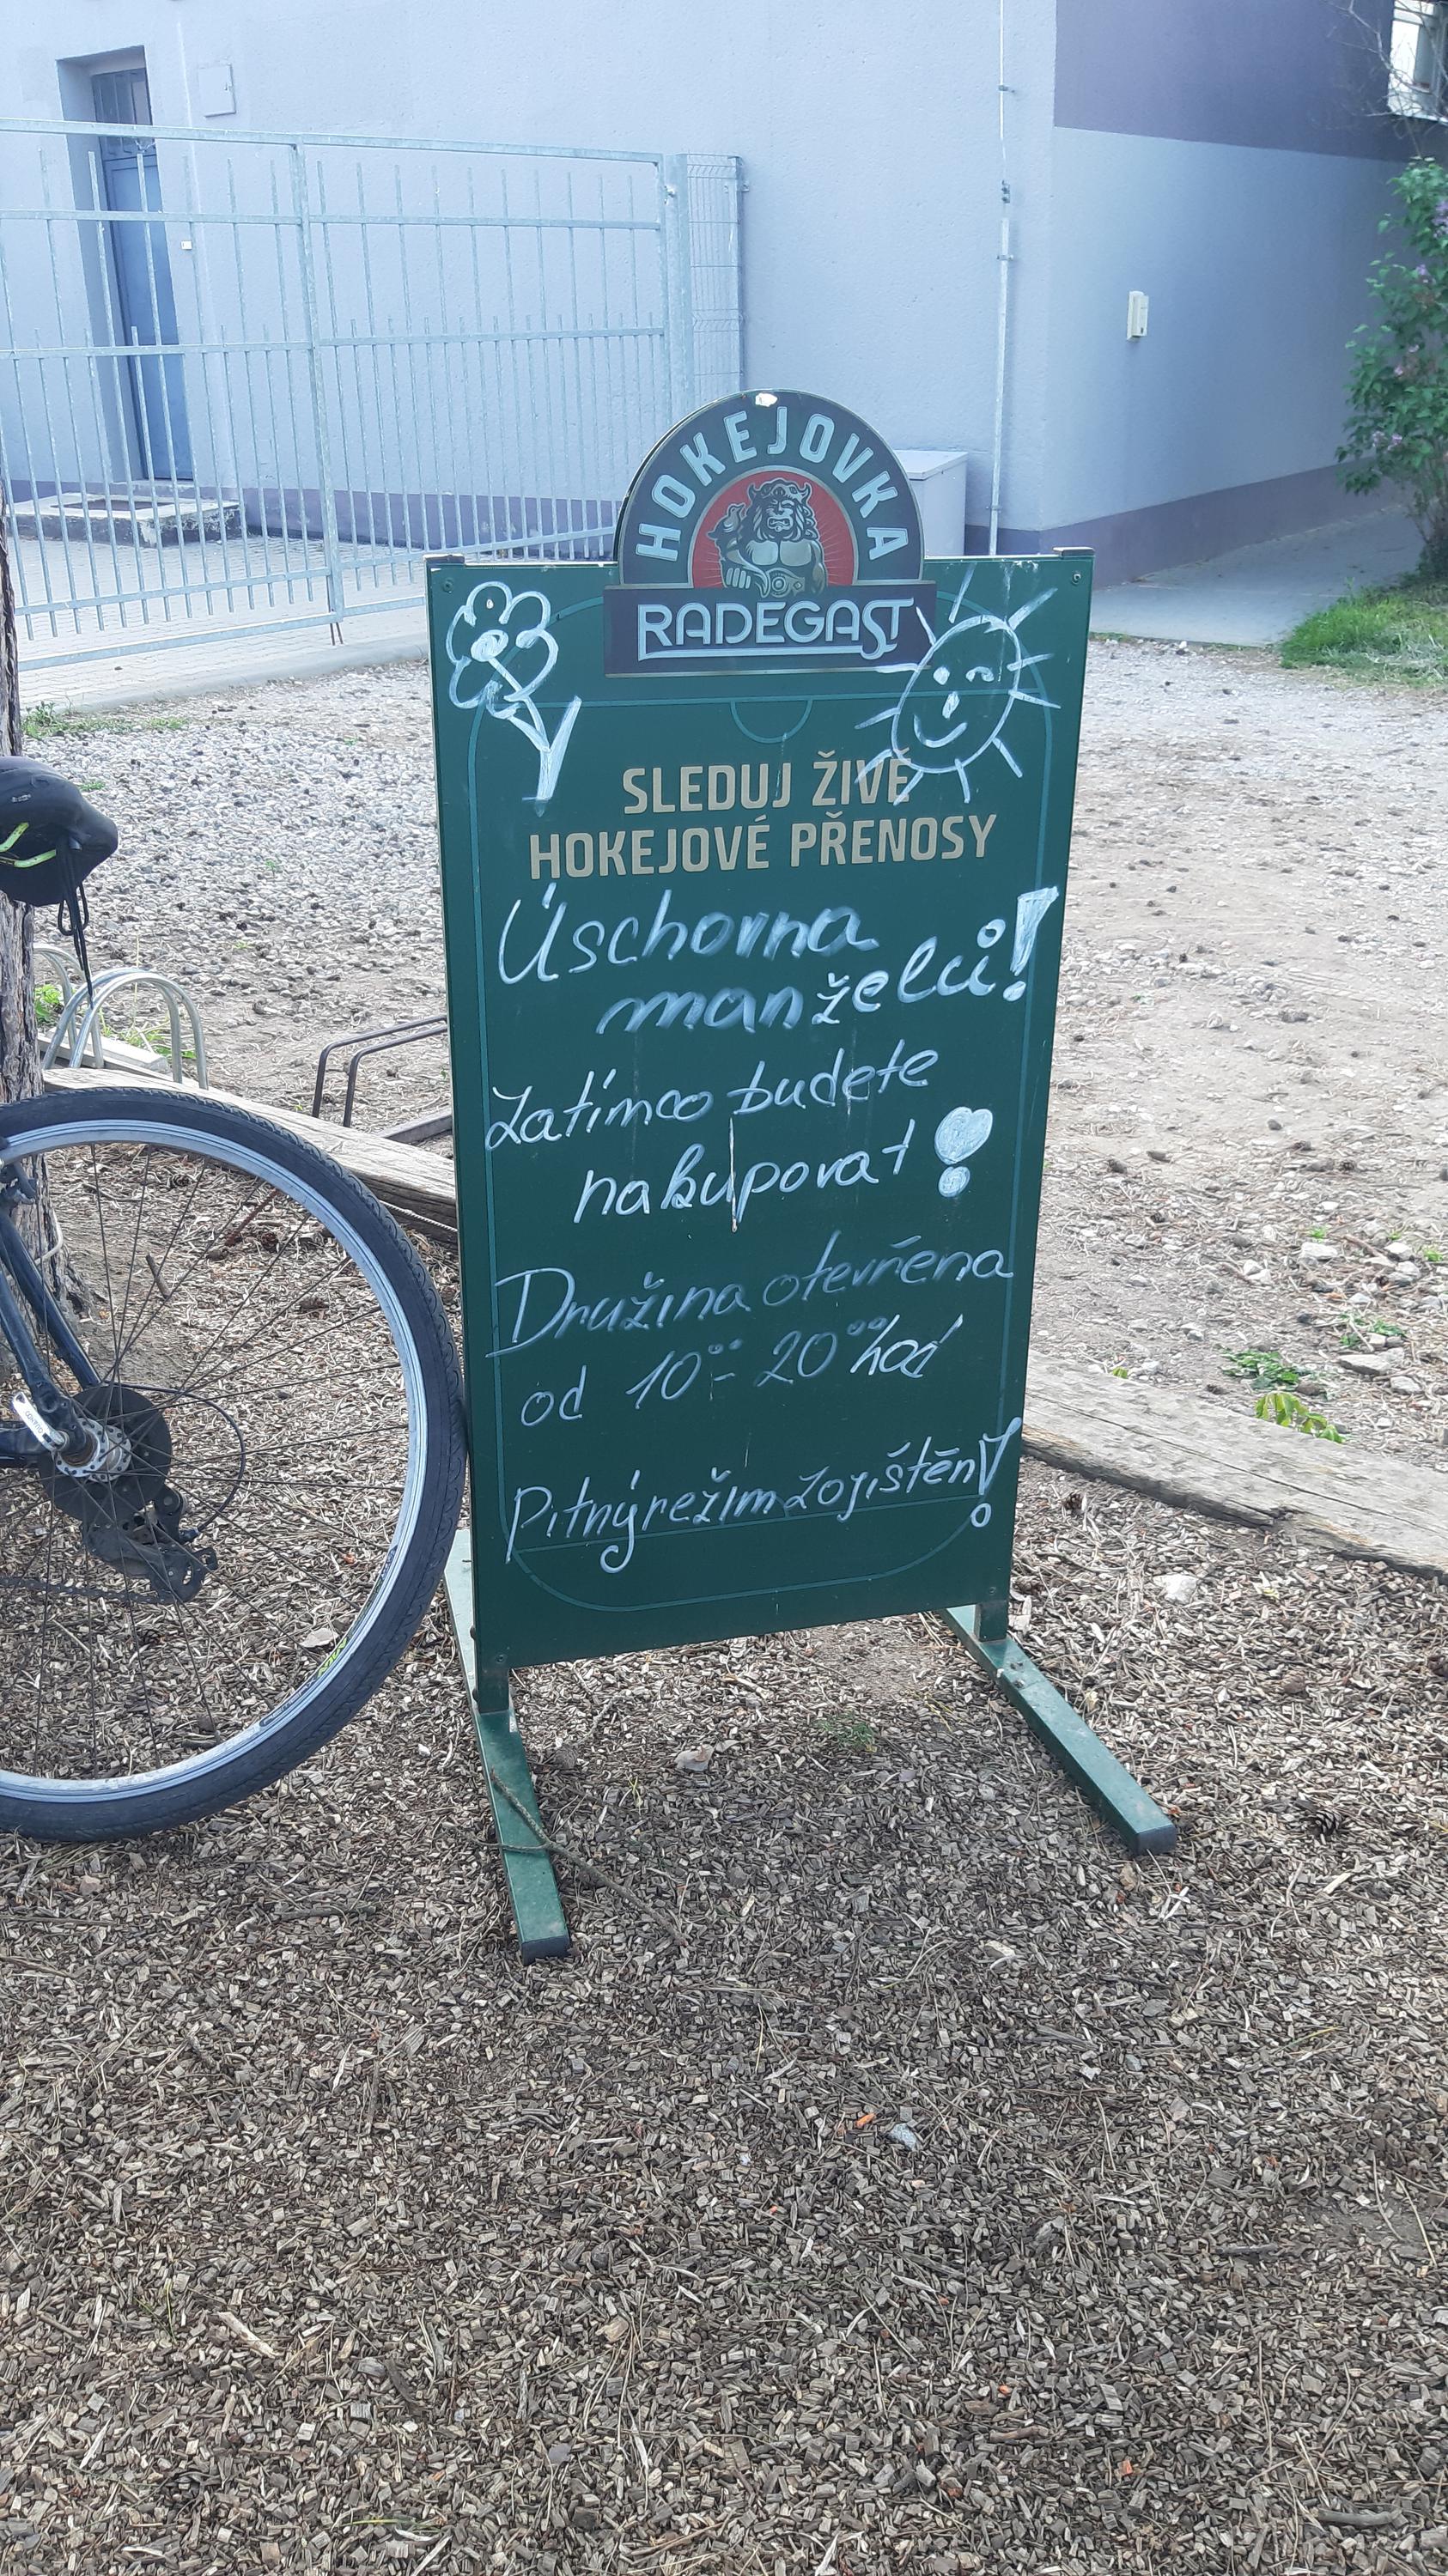 HOKEJOVKA
RADEGAST
SLEDUJ ŽIVĚ
HOKEJOVÉ PŘENOSY
Úschovna
manželů!
Zatímco budete
nakupovat!
Družina otevřena
od 10⁰⁰ - 20⁰⁰ hod
Pitný režim zajištěn!